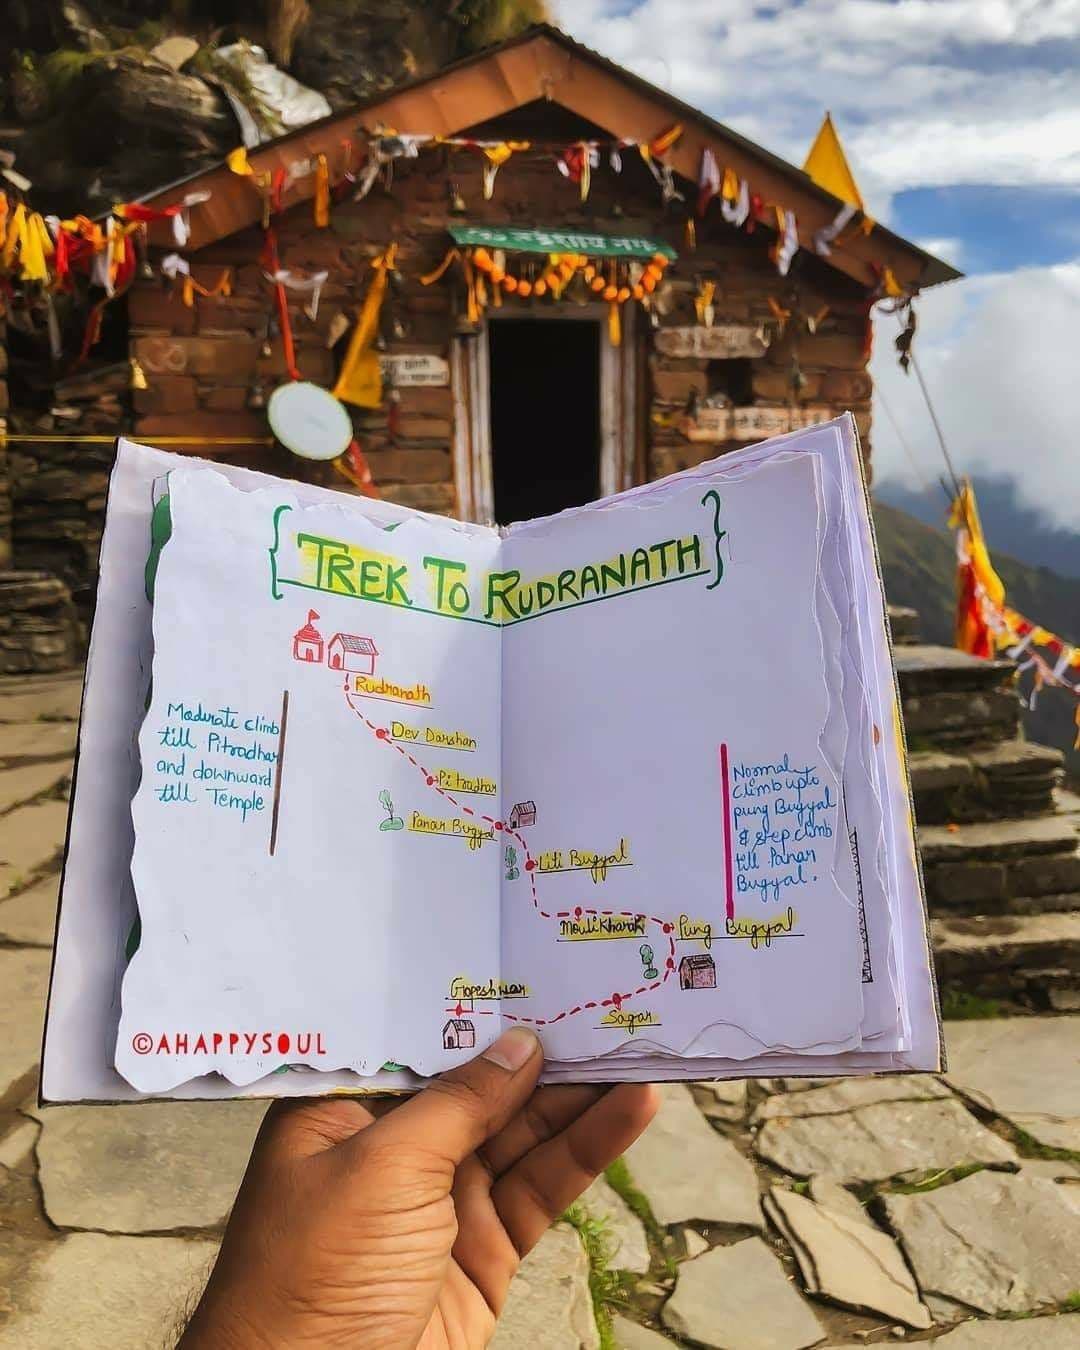 TREK TO RUDRANATH
Rudranath
Dev Darshan
Pitradhar
Panar Bugyal
Liti Bugyal
Moulikharak
Pung Bugyal
Sagar
Gopeshwar
Moderate climb
till Pitradhar
and downward
till Temple
Normal
climb upto
pung Bugyal
& steep climb
till Panar
Bugyal.
©AHAPPYSOUL